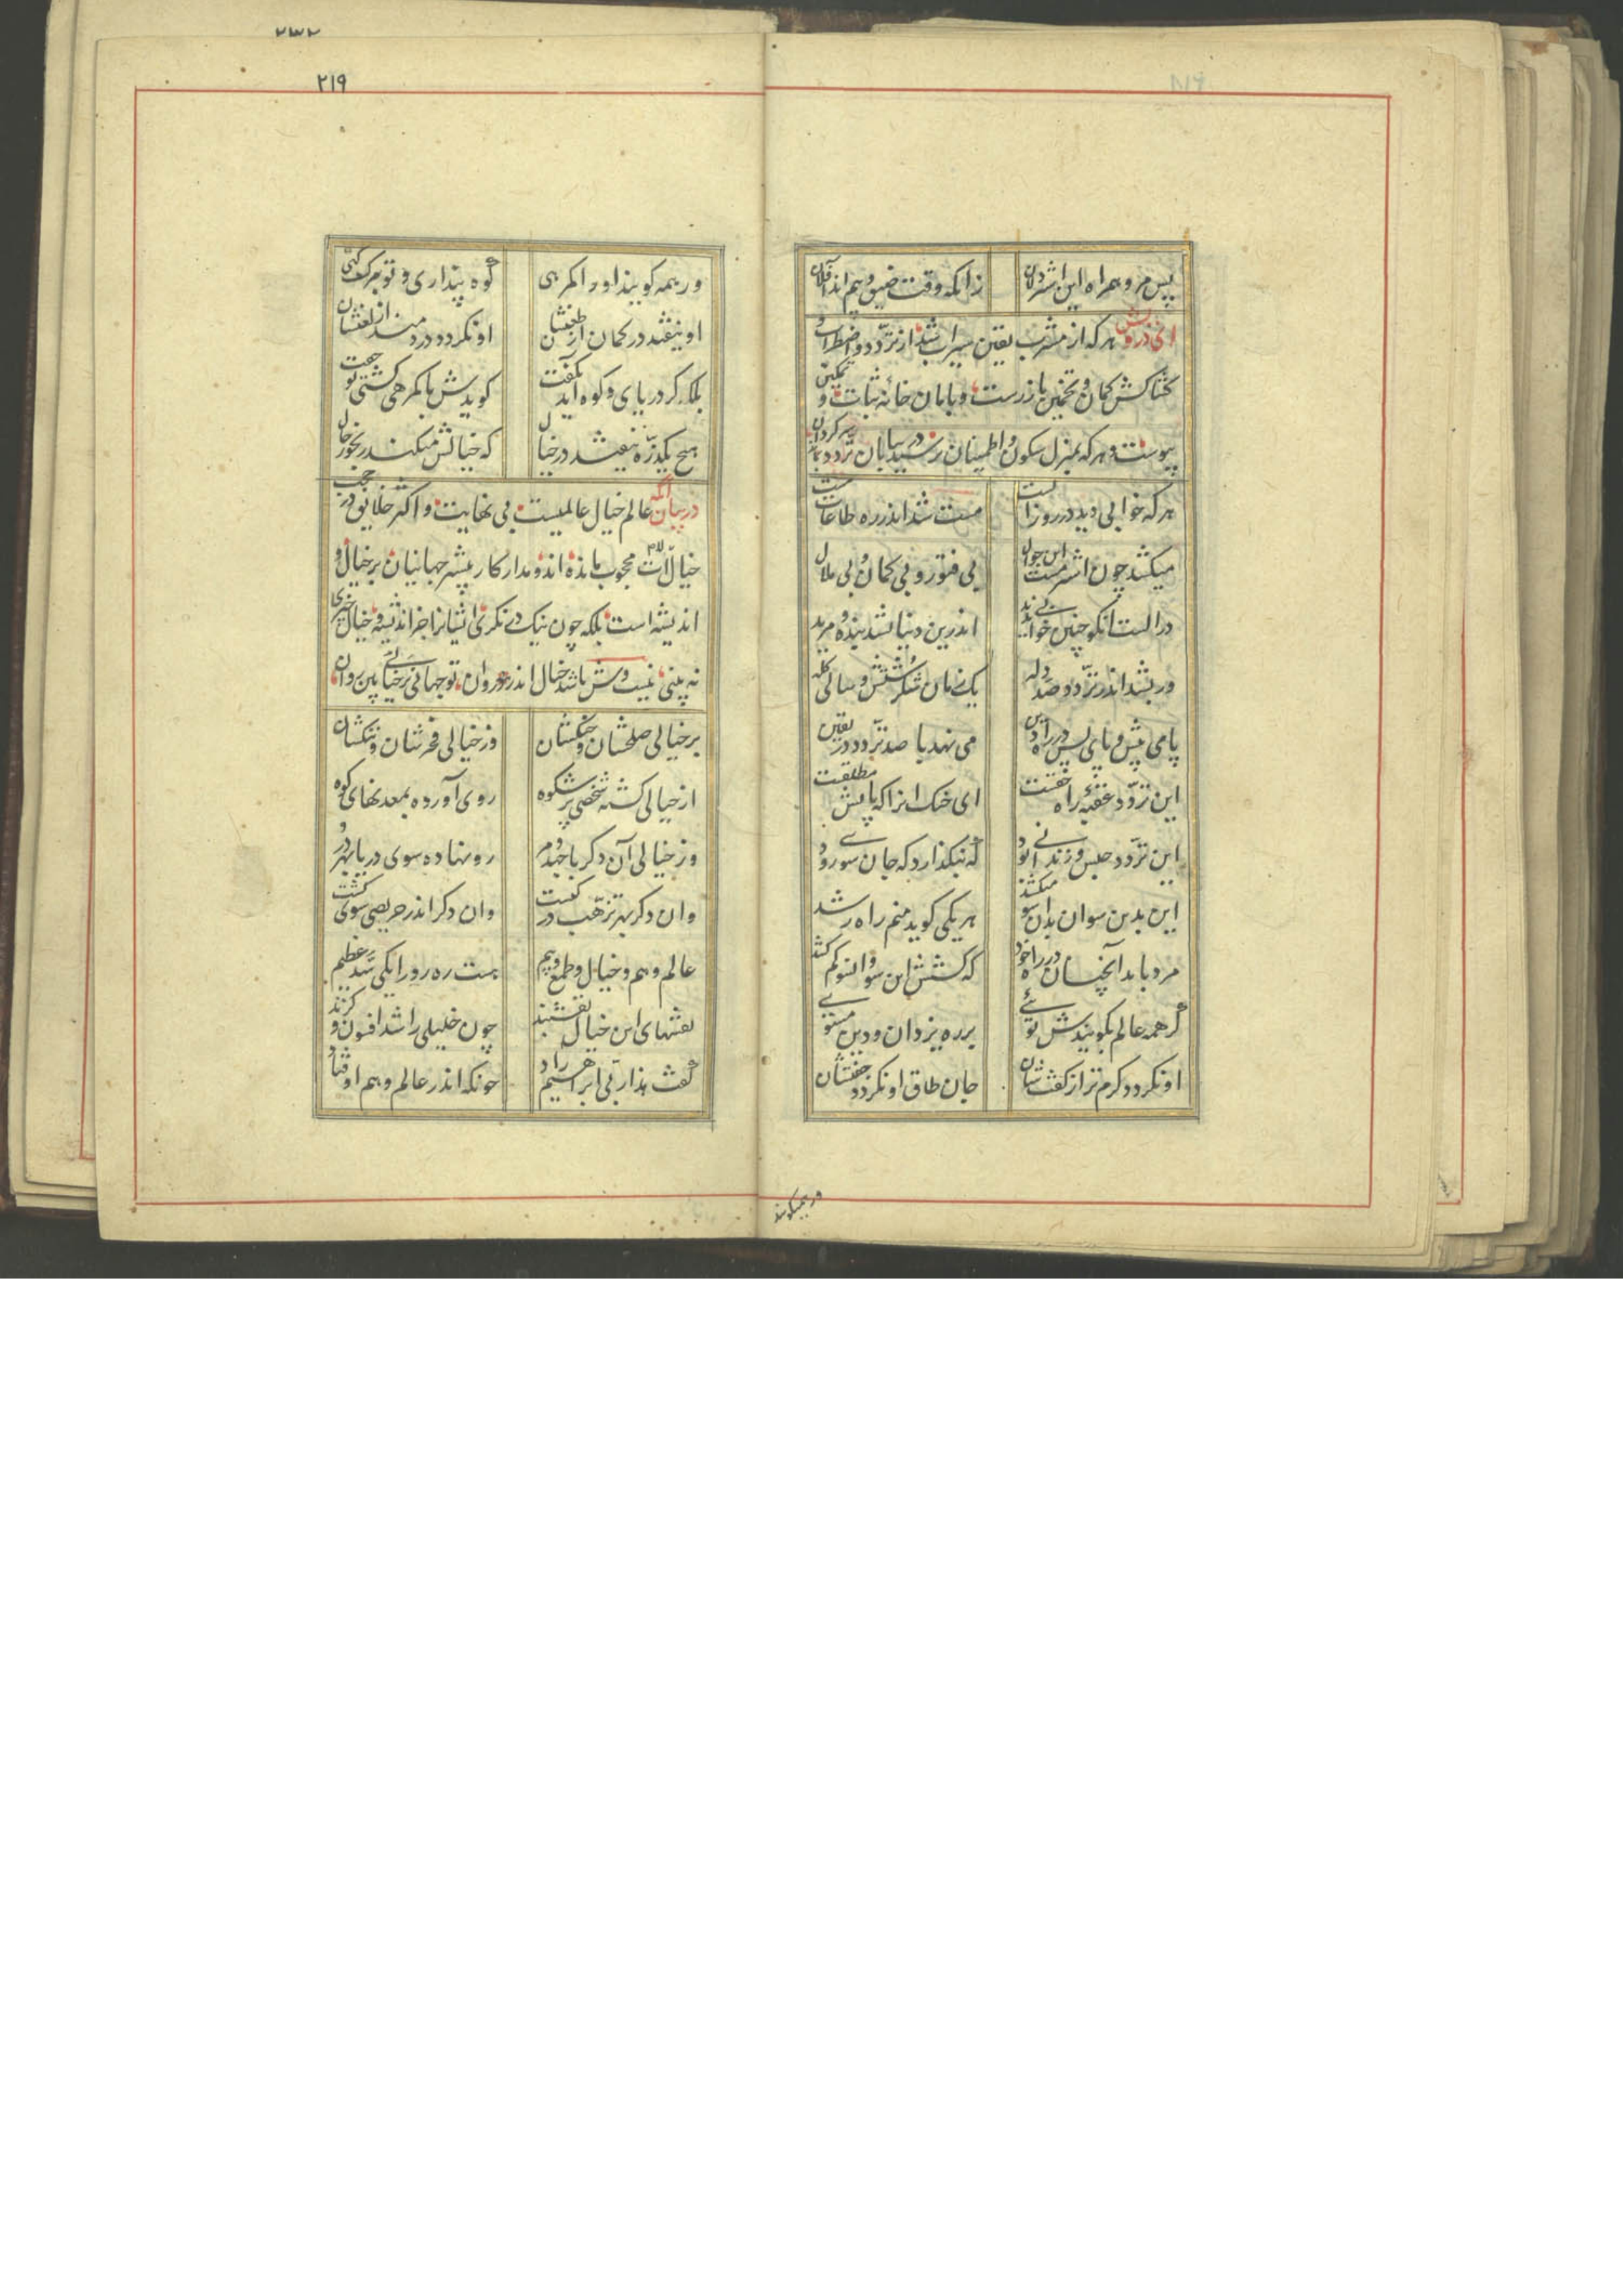 ۲۱۹
پس مرو همراه این اشتردلان زانکه وقت ضیق و بیم اند آفلان
ای درویش هرکه از مشرب یقین سیراب شد از تردد و اضطراب و
کشاکش کمان و تخمین باز رست و بامان خانه ثبات و تمکین
پیوست و هرکه بمنزل سکون و اطمینان نرسید در بیابان تردد سرکردان بماند
هرکه خوابی دید در روز الست مست شد اندر ره طاعات مست
میکشد چون اشتر مست این جوال بی فتور و بی کمان و بی ملال
در الست انکو چنین خوابی ندید اندرین دنیا نشد بنده و مرید
ور بشد اندر تردد صد دله یک زمان شکرستش و سالی کله
پای پیش و پای پس در راه دین می نهد با صد تردد در یقین
این تردد عقبه راه حقست ای خنک انرا که پایش مطلقست
این تردد حبس و زندانی بود که نیکذارد که جان سوئی رود
این بدین سو ان بدان سو میکشد هر یکی کوید منم راه رشد
مرد باید آنچنان در راه خود که کشش این سو و انسو کم کشد
کر همه عالم بکویندش توئی بر ره یزدان و دین مستوی
او نکردد کرم تر از کفتشان جان طاق او نکردد جفتشان
ور همیکویند
ور همه کویند او را کمرهی کوه پنداری و تو برک کهی
او نیفتد در کمان از طعنشان او نکردد دردمند از ظعنشان
بلکه کر دریای و کوه آید بکفت کویدش با کمرهی کشتی تو جفت
هیچ یکذره نیفتد در خیال که خیالش میکند رنجور حال
در بیان آنکه عالم خیال عالمیست بی نهایت و اکثر خلایق در حجب
خیالات محجوب مانده اند و مدار کار بیشتر جهانیان بر خیال و
اندیشه است بلکه چون نیک در نکری اشیانرا جز اندیشه و خیال چیزی
نه بینی نیست وش باشد خیال اندر روان تو جهانی بر خیالی بین روان
بر خیالی صلحشان و جنکشان وز خیالی فخرشان و ننکشان
از خیالی کشته شخصی پر شکوه روی آورده بمعدنهای کوه
وز خیالی آن دکر با جهد مر رو نهاده سوی دریا بهر در
وان دکر بهر ترهب در کنشت وان دکر اندر حریصی سوی کشت
عالم وهم و خیال و طمع و بیم هست ره رو را یکی سد عظیم
نقشهای این خیال نقشبند چون خلیلی را شد افسون و کزند
کفت هذا ربی ابراهیم راد چونکه اندر عالم وهم اوفتاد